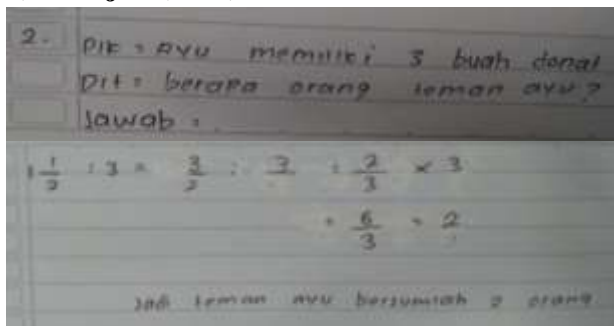 2. Dik : Ayu memiliki 3 buah donat
Dit : berapa orang teman ayu?
Jawab :
1 1/2 : 3 = 3/2 : 3 : 2/3 × 3
= 6/3 = 2
Jadi teman ayu berjumlah 2 orang